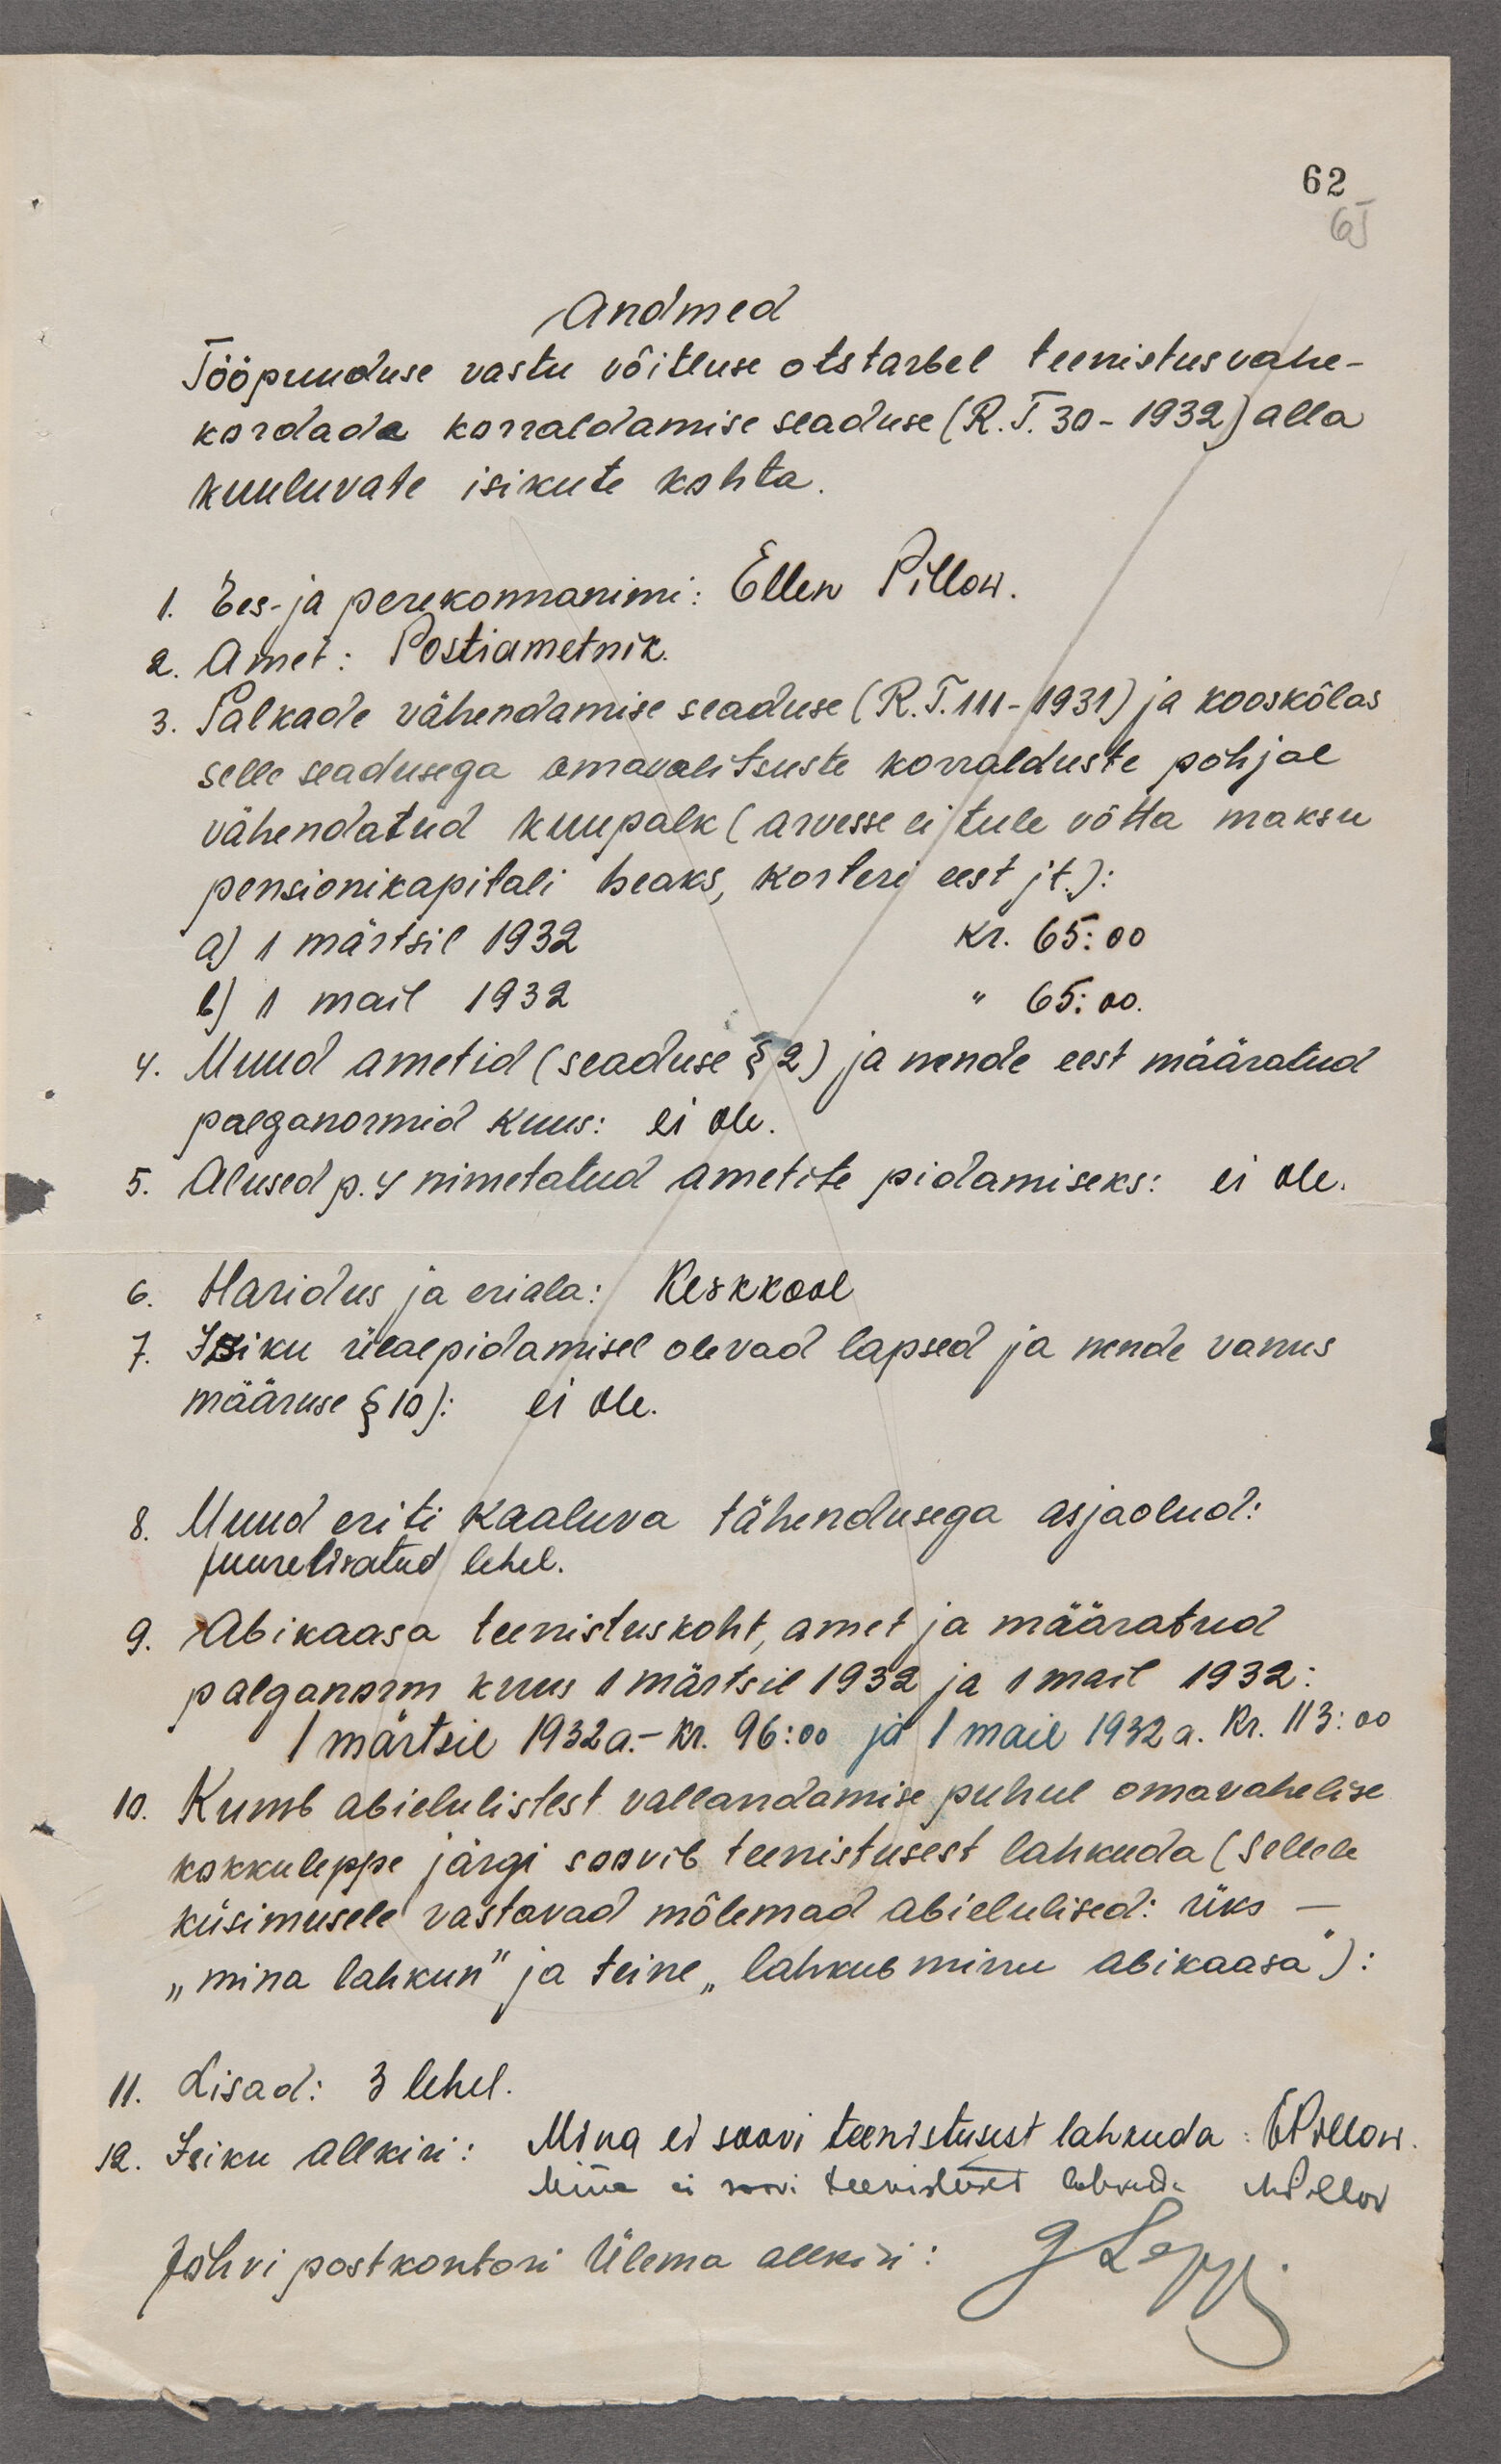 62
65
Andmed
Tööpuuduse vastu võitluse otstarbel teenistusvahe-
kordade korraldamise seaduse (R.T. 30 - 1932) alla
kuuluvate isikute kohta.
1. Ees- ja perekonnanimi: Ellen Pillow.
2. Amet: Postiametnik.
3. Palkade vähendamise seaduse (R.T. 111 - 1931) ja kooskõlas
selle seadusega omavalitsuste korralduste põhjal
vähendatud kuupalk (arvesse ei tule võtta maksu
pensionikapitali heaks, korteri eest jt.):
a) 1 märtsil 1932 Kr. 65:00
b) 1 mail 1932 " 65:00.
4. Muud ametid (seaduse § 2) ja nende eest määratud
palganormid kuus: ei ole.
5. Alused p. 4 nimetatud ametite pidamiseks: ei ole.
6. Haridus ja eriala: Keskkool
7. Isiku ülalpidamisel olevad lapsed ja nende vanus
määruse § 10): ei ole.
8. Muud eriti kaaluva tähendusega asjaolud:
juurelisatud lehel.
9. Abikaasa teenistuskoht, amet ja määratud
palganorm kuus 1 märtsil 1932 ja 1 mail 1932:
1 märtsil 1932 a. - Kr. 96:00 ja 1 mail 1932 a. Kr. 113:00
10. Kumb abielulistest vallandamise puhul omavahelise
kokkuleppe järgi soovib teenistusest lahkuda (Sellele
küsimusele vastavad mõlemad abielulised: üks —
„mina lahkun" ja teine „lahkub minu abikaasa"):
11. Lisad: 3 lehel.
12. Isiku allkiri: Mina ei soovi teenistusest lahkuda: EPillow.
Mina ei soovi teenistusest lahkuda MPillow
Jõhvi postkontori Ülema allkiri: G Lepp.